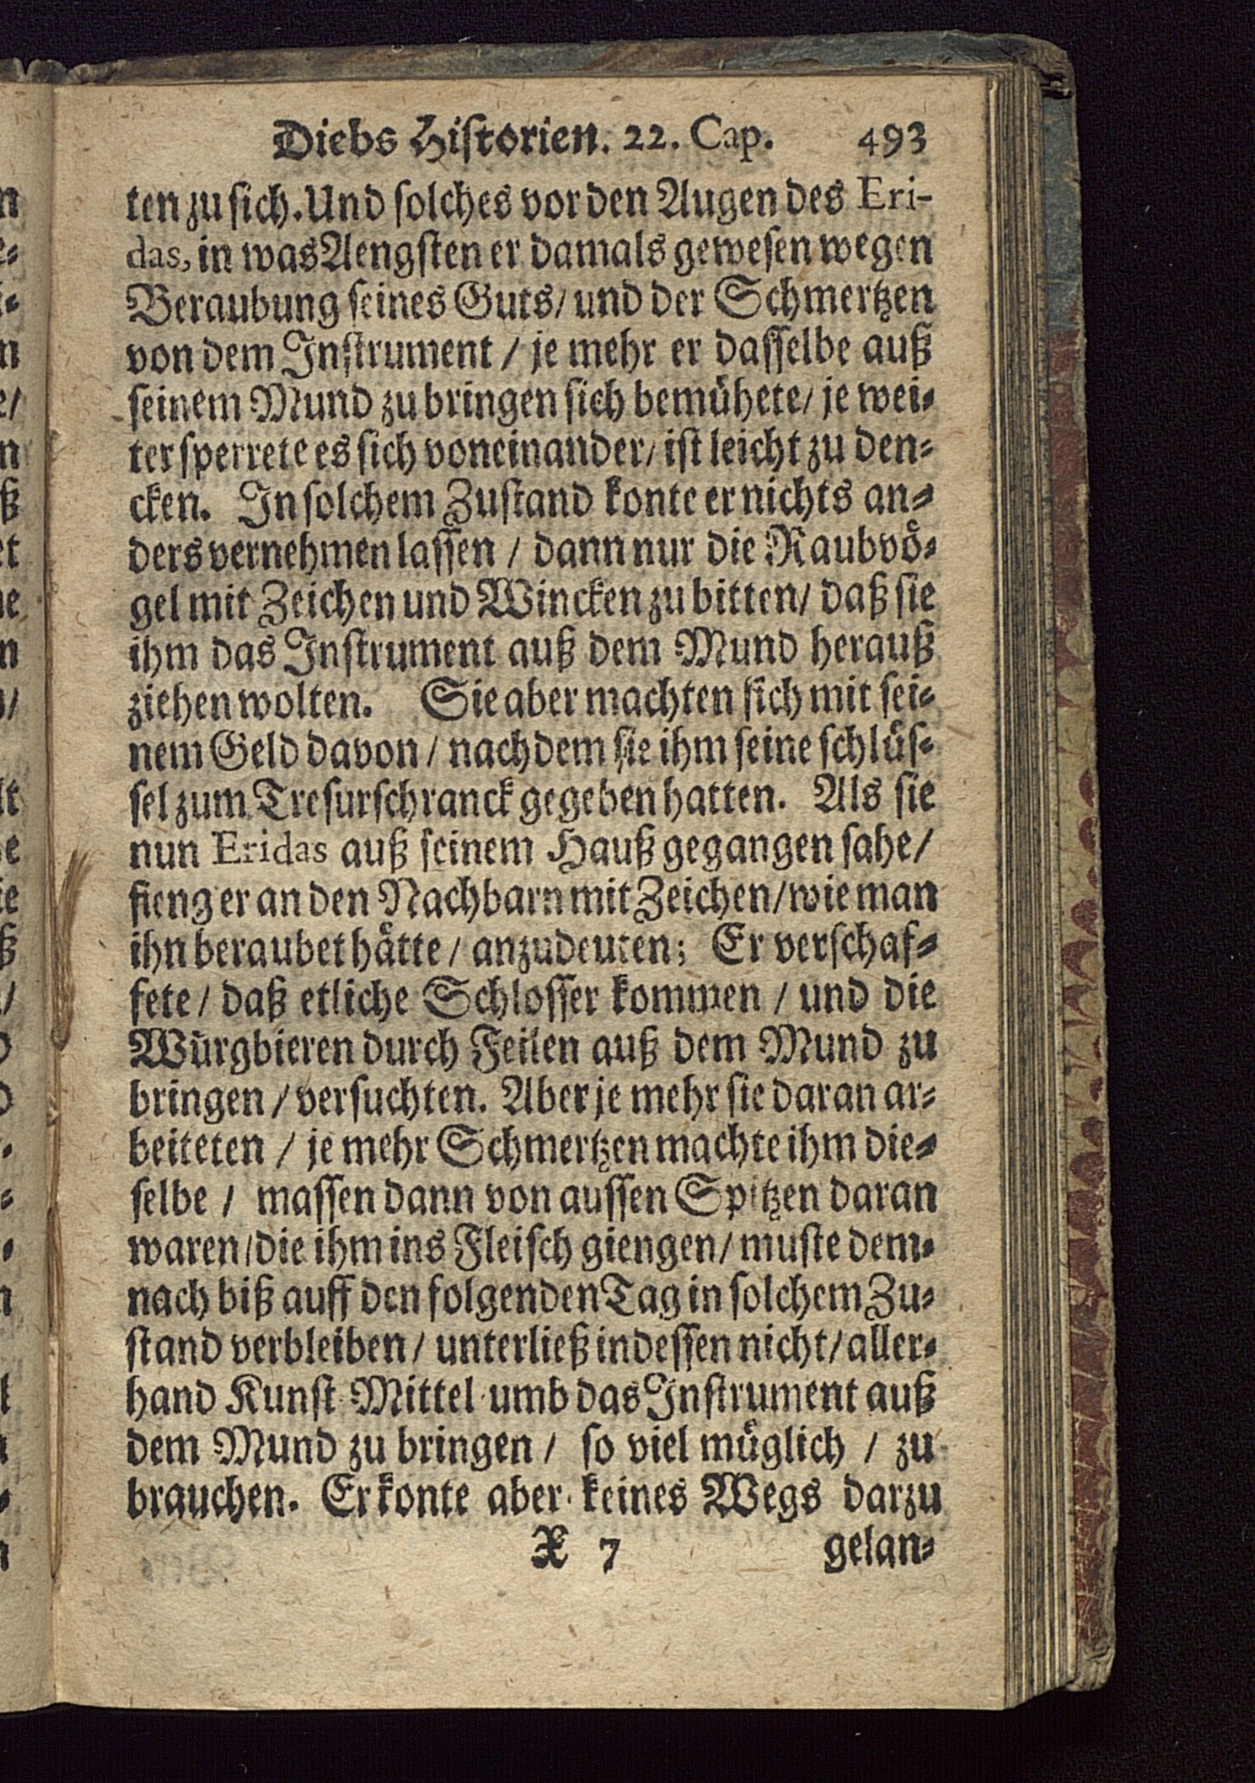 Diebs Historien. 22. Cap. 493
ten zu sich. Und solches vor den Augen des Eri-
das, in was Aengsten er damals gewesen wegen
Beraubung seines Guts/ und der Schmertzen
von dem Instrument / je mehr er dasselbe auß
seinem Mund zu bringen sich bemühete/ je wei-
ter sperrete es sich voneinander/ ist leicht zu den-
cken. In solchem Zustand konte er nichts an-
ders vernehmen lassen / dann nur die Raubvö-
gel mit Zeichen und Wincken zu bitten/ daß sie
ihm das Instrument auß dem Mund herauß
ziehen wolten. Sie aber machten sich mit sei-
nem Geld davon / nach dem sie ihm seine schlüs-
sel zum Tresurschranck gegeben hatten. Als sie
nun Eridas auß seinem Hauß gegangen sahe/
fieng er an den Nachbarn mit Zeichen/ wie man
ihn beraubet hätte / anzudeuten; Er verschaf-
fete / daß etliche Schlosser kommen / und die
Würgbieren durch Feilen auß dem Mund zu
bringen / versuchten. Aber je mehr sie daran ar-
beiteten / je mehr Schmertzen machte ihm die-
selbe / massen dann von aussen Spitzen daran
waren/ die ihm ins Fleisch giengen/ muste dem-
nach biß auff den folgenden Tag in solchem Zu-
stand verbleiben / unterließ indessen nicht/ aller-
hand Kunst Mittel umb das Instrument auß
dem Mund zu bringen / so viel müglich / zu
brauchen. Er konte aber keines Wegs darzu
X 7 gelan-